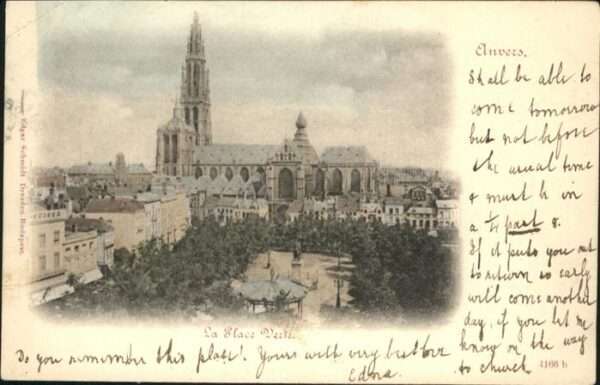 Anvers.
Shall be able to
come tomorrow
but not before
the usual time
& must be in
a 1/4 past 8.
If it puts you out
to return so early
will come another
day, if you let me
know on the way
to church
La Place Verte.
Do you remember this place! Yours with very best love
Edna
4166 b
Edgar Schmidt, Dresden-Budapest.